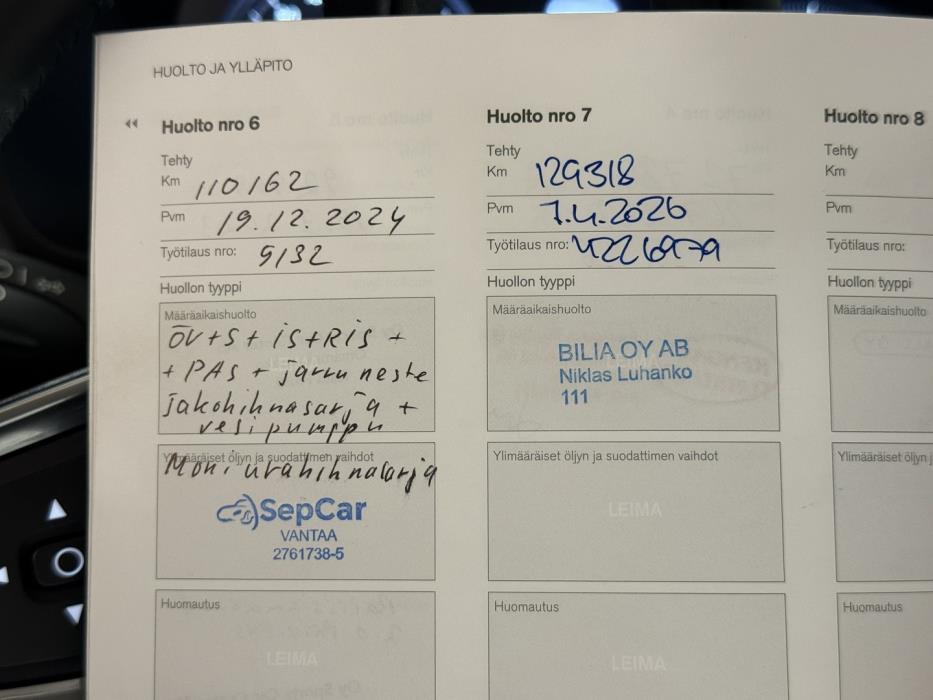 HUOLTO JA YLLÄPITO
Huolto nro 6
Tehty
Km 110162
Pvm 19.12.2024
Työtilaus nro: 5132
Huollon tyyppi
Määräaikaishuolto
ÖV+S + iS+RiS +
+ PAS + jarru neste
jakohihnasarja +
vesipumppu
Ylimääräiset öljyn ja suodattimen vaihdot
Moniurahihnasarja
SepCar
VANTAA
2761738-5
Huomautus
LEIMA
Huolto nro 7
Tehty
Km 129318
Pvm 7.4.2026
Työtilaus nro: 4226979
Huollon tyyppi
Määräaikaishuolto
BILIA OY AB
Niklas Luhanko
111
Ylimääräiset öljyn ja suodattimen vaihdot
LEIMA
Huomautus
LEIMA
Huolto nro 8
Tehty
Km
Pvm
Työtilaus nro:
Huollon tyyppi
Määräaikaishuolto
Ylimääräiset öljyn
Huomautus